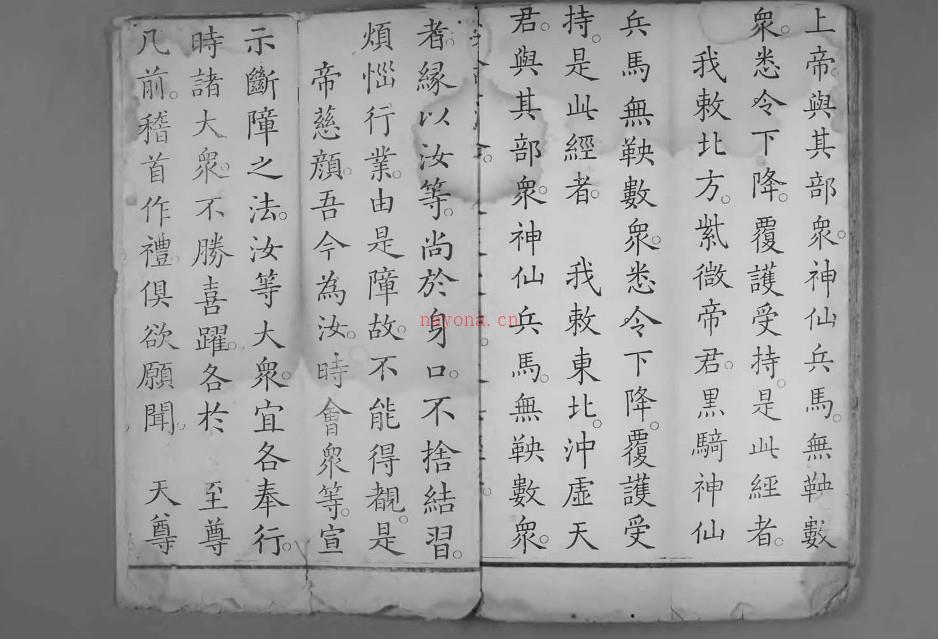 上帝。與其部衆。神仙兵馬。無鞅數
衆。悉令下降。覆護受持。是此經者。
我敕北方。紫微帝君。黑騎神仙
兵馬無鞅數衆。悉令下降。覆護受
持。是此經者。 我敕東北。沖虛天
君。與其部衆。神仙兵馬。無鞅數衆。
者。緣以汝等。尚於身口。不捨結習。
煩惱行業。由是障故。不能得覩。是
帝慈顔。吾今為汝。時會衆等。宣
示斷障之法。汝等大衆。宜各奉行。
時諸大衆。不勝喜躍。各於 至尊
几前。稽首作禮。俱欲願聞。 天尊
nayona.cn